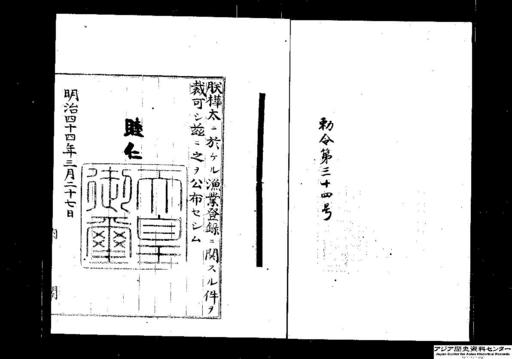 勅令第三十四号
朕樺太ニ於ケル漁業登録ニ関スル件ヲ
裁可シ茲ニ之ヲ公布セシム
睦仁
天皇御璽
明治四十四年三月二十七日
内閣
アジア歴史資料センター
Japan Center for Asian Historical Records